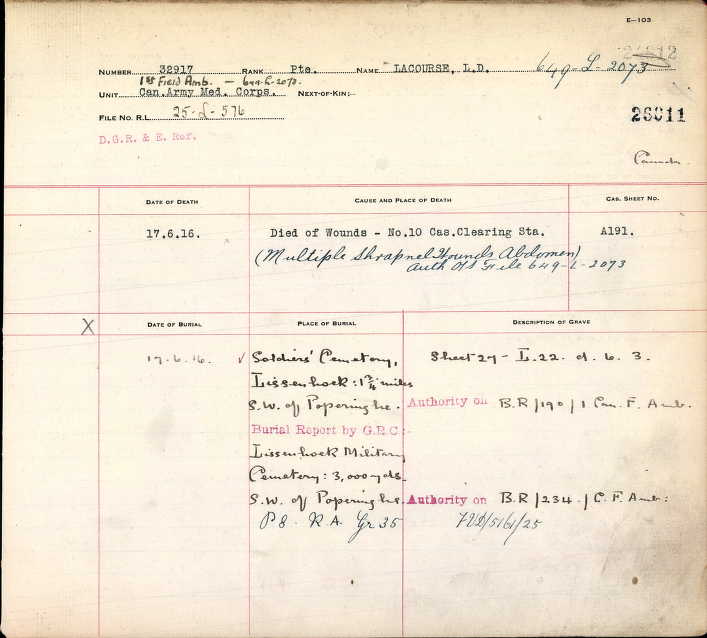 E—103
NUMBER 32917 RANK Pte. NAME LACOURSE, L.D. 649-L-2073
1st Field Amb. — 649-L-2073.
UNIT Can.Army Med. Corps. NEXT-OF-KIN:—
FILE NO. R.L. 25-L-576
26011
D.G.R. & E. Ref.
Canada.
DATE OF DEATH CAUSE AND PLACE OF DEATH CAS. SHEET NO.
17.6.16. Died of Wounds - No.10 Cas.Clearing Sta. A191.
(Multiple Shrapnel Wounds Abdomen)
Auth O/S File 649-L-2073
X DATE OF BURIAL PLACE OF BURIAL DESCRIPTION OF GRAVE
17.6.16. ✓ Soldiers' Cemetery, Sheet 27 - L.22. d. 6. 3.
Lissenhoek: 1¾ miles
S.W. of Poperinghe. Authority on B.R/190/1 Can. F. Amb.
Burial Report by G.R.C:-
Lissenhoek Military
Cemetery: 3,000 yds.
S.W. of Poperinghe. Authority on B.R/234./C.F. Amb:
P8. R A. Gr 35